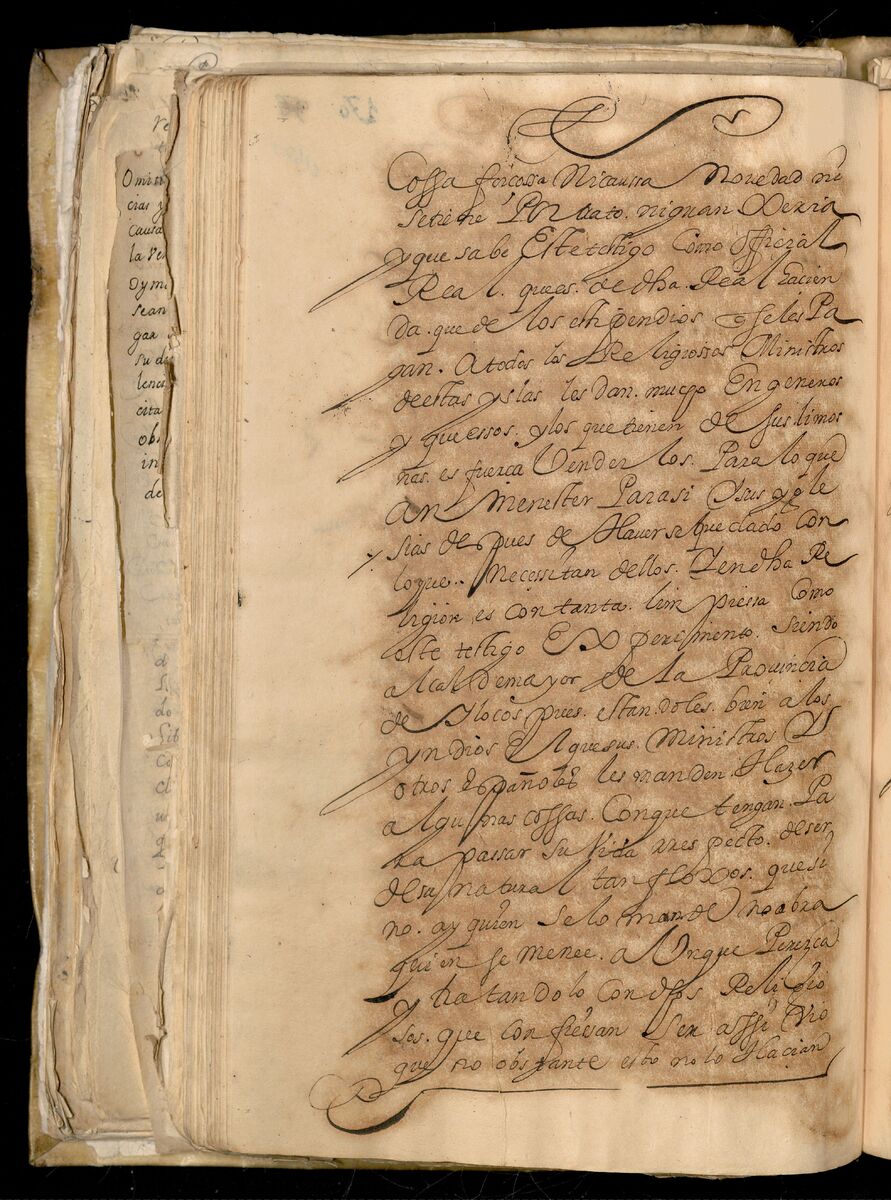 Cossa forcossa Nicaussa Novedad ni
se tiene Por trato. ninguan Dexria
y que sabe Este testigo Como official
Real. que es. de dha. Real hacien
da. que de los estipendios q̃ se les Pa
gan. A todos los Religiossos Ministros
de estas yslas les dan. mucho En generos
y que essos. y los que tienen de sus limos
nas. es fuerca Vender los. Para lo que
an Menester Para si Y sus ygle
sias despues de Haverse quedado con
lo que.. Necessitan dellos. Y en dha Re
ligion es con tanta. limpiessa Como
este testigo Experimento. Siendo
alcalde mayor de la Provincia
de Ylocos pues. estandoles. bien a los
yndios El que sus. Ministros Y
otros Españoles les manden Hazer
algunas cossas. Con que tengan. Pa
ra passar su Vida rrespecto. de ser
de su natural tan floxos. que si
no. ay quien se lo mande no abra
quien se menee. a Unque Perezca
Y tratandolo Con dhos Religio
sos. que confiesan Ser assi Vio
que no obstante esto no lo Hacian
Omisi
cias y
Causa
la ve
Dy mi
sean
gar
su di
lenci
cita
ob
in
de